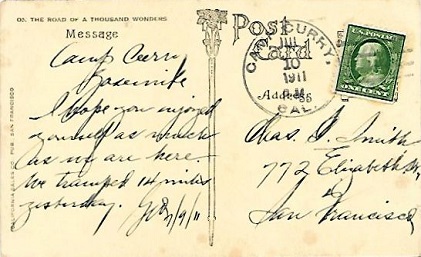 O3. THE ROAD OF A THOUSAND WONDERS
Message
Camp Curry
Yosemite
I hope you enjoyed
yourself as much
as we are here.
We tramped 14 miles
yesterday.
7/9/11
Post
Card
Address
CAMP CURRY,
JUL
10
1911
CAL.
U.S. POSTAGE
ONE CENT
Chas. S. Smith
772 Elizabeth St,
San Francisco
PUB. SAN FRANCISCO